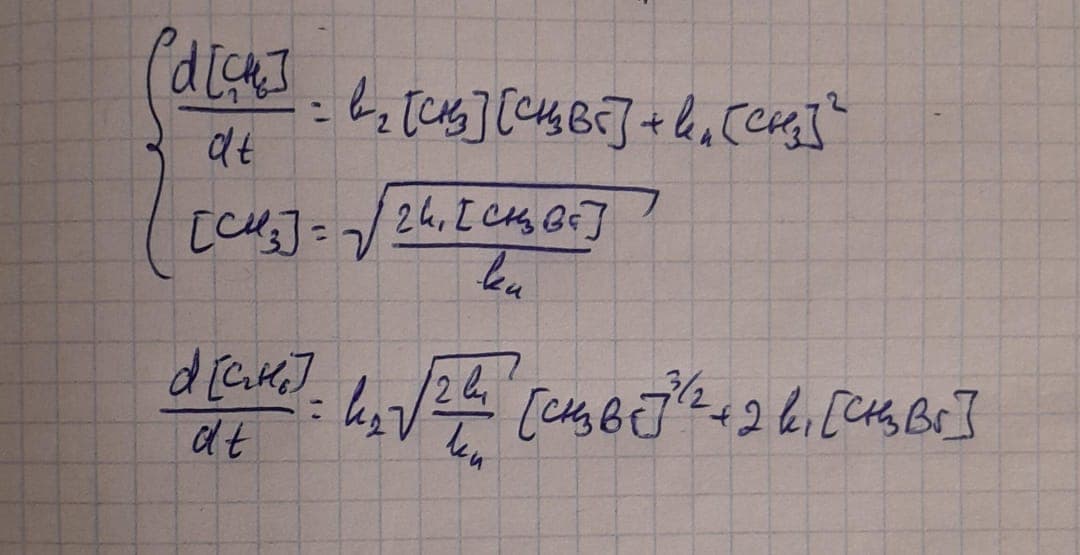 d[C₂H₆]/dt = k₂[CH₃][CH₃Br] + k₄[CH₃]²
[CH₃] = √(2k₁[CH₃Br]/k₄)
d[C₂H₆]/dt = k₂√(2k₁/k₄) [CH₃Br]^3/2 + 2k₁[CH₃Br]